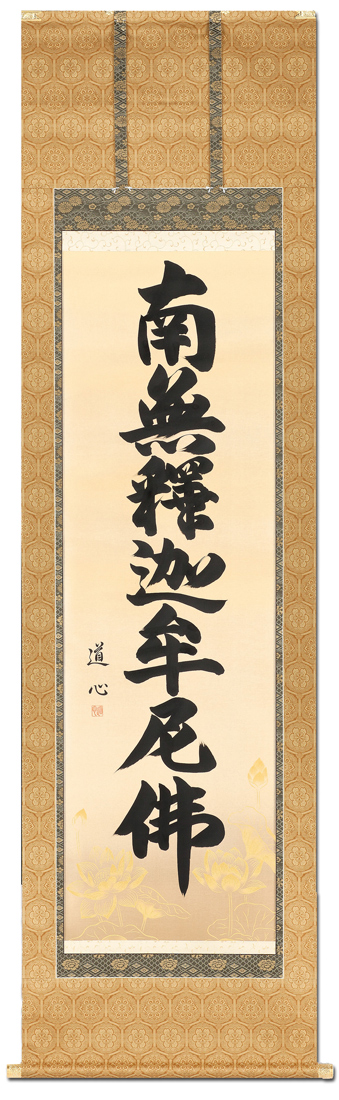 南無釋迦牟尼佛
道心